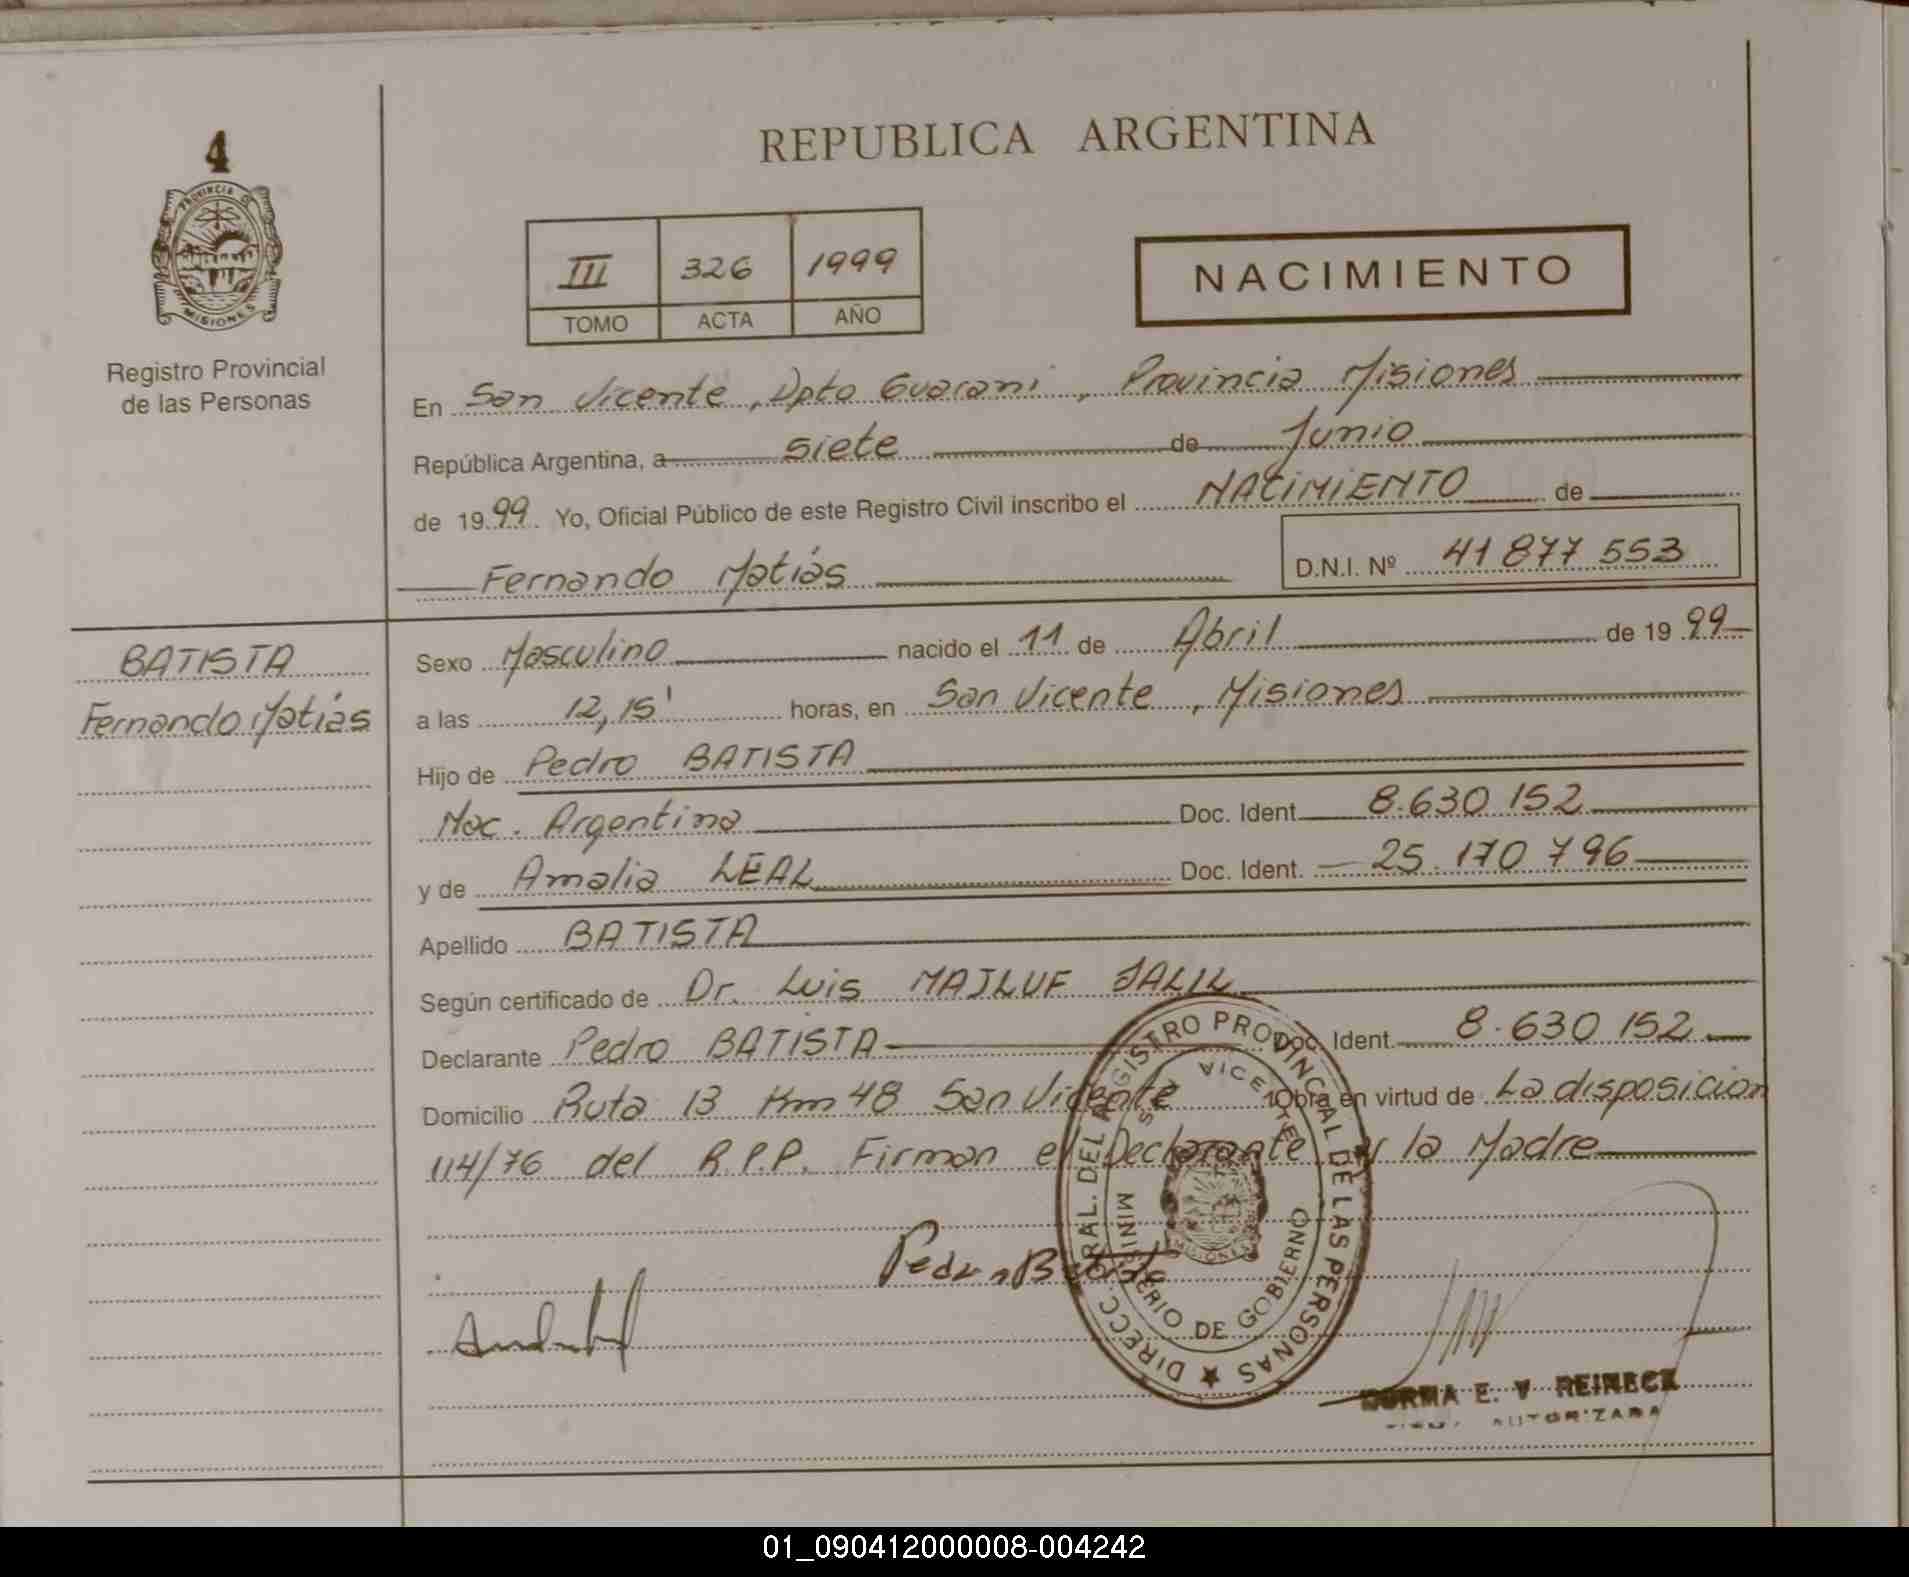 4
PROVINCIA DE
MISIONES
Registro Provincial
de las Personas
REPUBLICA ARGENTINA
III 326 1999
TOMO ACTA AÑO
NACIMIENTO
En San Vicente, Dpto Guarani, Provincia Misiones
República Argentina, a siete de Junio
de 1999. Yo, Oficial Público de este Registro Civil inscribo el NACIMIENTO de
Fernando Matías D.N.I. Nº 41 877 553
BATISTA
Fernando Matías
Sexo Masculino nacido el 11 de Abril de 1999
a las 12,15' horas, en San Vicente, Misiones
Hijo de Pedro BATISTA
Nac. Argentina Doc. Ident. 8.630 152
y de Amalia LEAL Doc. Ident. 25.170 796
Apellido BATISTA
Según certificado de Dr. Luis MAJLUF JALIL
Declarante Pedro BATISTA Doc. Ident. 8.630 152
Domicilio Ruta 13 Km 48 San Vicente Obra en virtud de La disposicion
114/76 del R.P.P. Firman el Declarante y la Madre
DIRECC. GRAL. DEL REGISTRO PROVINCIAL DE LAS PERSONAS
S. VICENTE
MINISTERIO DE GOBIERNO
MISIONES
Pedro Batista
E. V. REINECK
AUTORIZADA
01_090412000008-004242